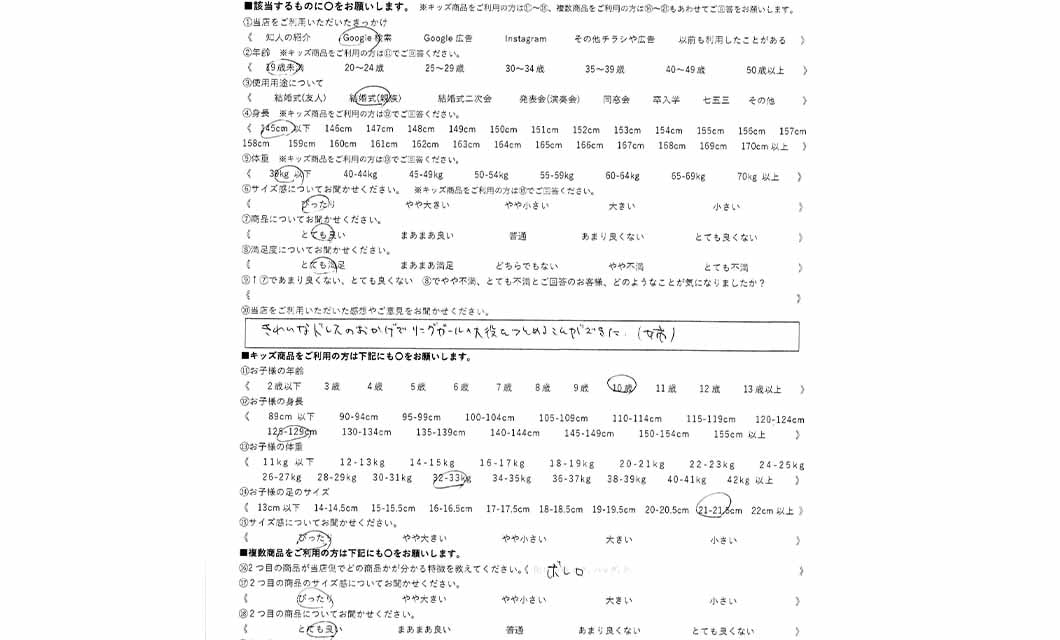 ■該当するものに〇をお願いします。 ※キッズ商品をご利用の方は⑪～⑮、複数商品をご利用の方は⑯～⑳もあわせてご回答をお願いします。
①当店をご利用いただいたきっかけ
《 知人の紹介 Google 検索 Google 広告 Instagram その他チラシや広告 以前も利用したことがある 》
②年齢 ※キッズ商品をご利用の方は⑪でご回答ください。
《 19歳未満 20～24歳 25～29歳 30～34歳 35～39歳 40～49歳 50歳以上 》
③使用用途について
《 結婚式(友人) 結婚式(親族) 結婚式二次会 発表会(演奏会) 同窓会 卒入学 七五三 その他 》
④身長 ※キッズ商品をご利用の方は⑫でご回答ください。
《 145cm 以下 146cm 147cm 148cm 149cm 150cm 151cm 152cm 153cm 154cm 155cm 156cm 157cm
158cm 159cm 160cm 161cm 162cm 163cm 164cm 165cm 166cm 167cm 168cm 169cm 170cm 以上 》
⑤体重 ※キッズ商品をご利用の方は⑬でご回答ください。
《 39kg 以下 40-44kg 45-49kg 50-54kg 55-59kg 60-64kg 65-69kg 70kg 以上 》
⑥サイズ感についてお聞かせください。 ※キッズ商品をご利用の方は⑮でご回答ください。
《 ぴったり やや大きい やや小さい 大きい 小さい 》
⑦商品についてお聞かせください。
《 とても良い まあまあ良い 普通 あまり良くない とても良くない 》
⑧満足度についてお聞かせください。
《 とても満足 まあまあ満足 どちらでもない やや不満 とても不満 》
⑨↑⑦であまり良くない、とても良くない ⑧でやや不満、とても不満とご回答のお客様、どのようなことが気になりましたか？
《 》
⑩当店をご利用いただいた感想やご意見をお聞かせください。
きれいなドレスのおかげでリングガールの大役をつとめることができた。(姉)
■キッズ商品をご利用の方は下記にも〇をお願いします。
⑪お子様の年齢
《 2歳以下 3歳 4歳 5歳 6歳 7歳 8歳 9歳 10歳 11歳 12歳 13歳以上 》
⑫お子様の身長
《 89cm 以下 90-94cm 95-99cm 100-104cm 105-109cm 110-114cm 115-119cm 120-124cm
125-129cm 130-134cm 135-139cm 140-144cm 145-149cm 150-154cm 155cm 以上 》
⑬お子様の体重
《 11kg 以下 12-13kg 14-15kg 16-17kg 18-19kg 20-21kg 22-23kg 24-25kg
26-27kg 28-29kg 30-31kg 32-33kg 34-35kg 36-37kg 38-39kg 40-41kg 42kg 以上 》
⑭お子様の足のサイズ
《 13cm以下 14-14.5cm 15-15.5cm 16-16.5cm 17-17.5cm 18-18.5cm 19-19.5cm 20-20.5cm 21-21.5cm 22cm以上 》
⑮サイズ感についてお聞かせください。
《 ぴったり やや大きい やや小さい 大きい 小さい 》
■複数商品をご利用の方は下記にも〇をお願いします。
⑯2つ目の商品が当店側でどの商品かが分かる特徴を教えてください。《 ボレロ 》
⑰2つ目の商品のサイズ感についてお聞かせください。
《 ぴったり やや大きい やや小さい 大きい 小さい 》
⑱2つ目の商品についてお聞かせください。
《 とても良い まあまあ良い 普通 あまり良くない とても良くない 》